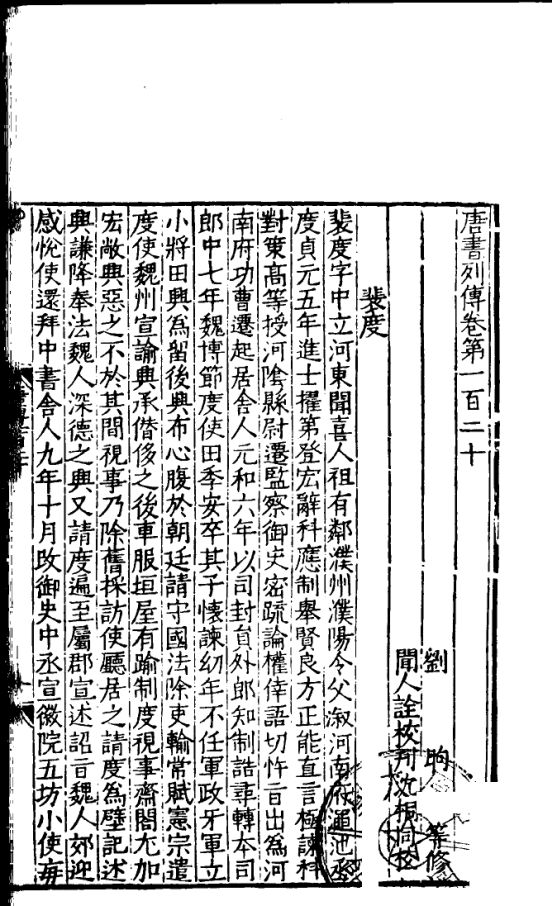 唐書列傳卷第一百二十
劉 昫 等修
聞人詮校刊沈桐同校
裴度
裴度字中立河東聞喜人祖有鄰濮州濮陽令父溆河南府澠池丞
度貞元五年進士擢第登宏辭科應制舉賢良方正能直言極諫科
對策高等授河陰縣尉遷監察御史密疏論權倖語切忤旨出為河
南府功曹遷起居舍人元和六年以司封員外郎知制誥尋轉本司
郎中七年魏博節度使田季安卒其子懷諫幼年不任軍政牙軍立
小將田興為留後興布心腹於朝廷請守國法除吏輸常賦憲宗遣
度使魏州宣諭興承僣侈之後車服垣屋有踰制度視事齋閤尤加
宏敞興惡之不於其間視事乃除舊採訪使廳居之請度為壁記述
興謙降奉法魏人深德之興又請度遍至屬郡宣述詔旨魏人郊迎
感恱使還拜中書舍人九年十月改御史中丞宣徽院五坊小使每